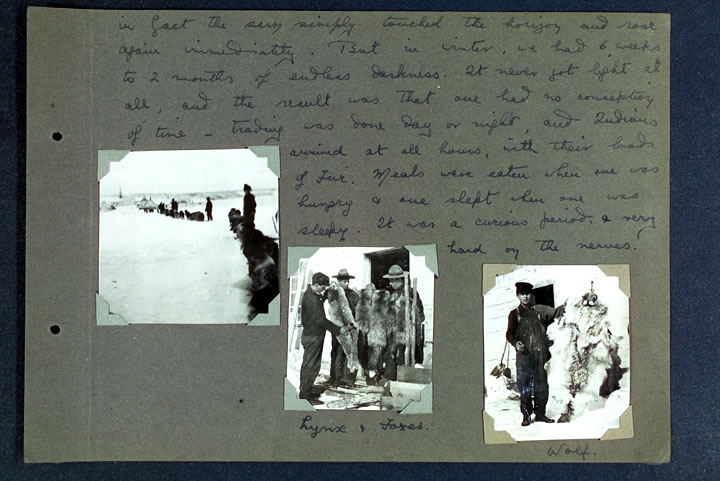 in fact the sun simply touched the horizon and rose
again immediatly. But in winter, we had 6 weeks
to 2 months of endless darkness. It never got light at
all, and the result was that one had no conseption
of time - trading was done day or night, and Indians
arrived at all hours, with their loads
of Fur. Meals were eaten when one was
hungry & one slept when one was
sleepy. It was a curious period, & very
hard on the nerves.
Lynx & Foxes.
Wolf.